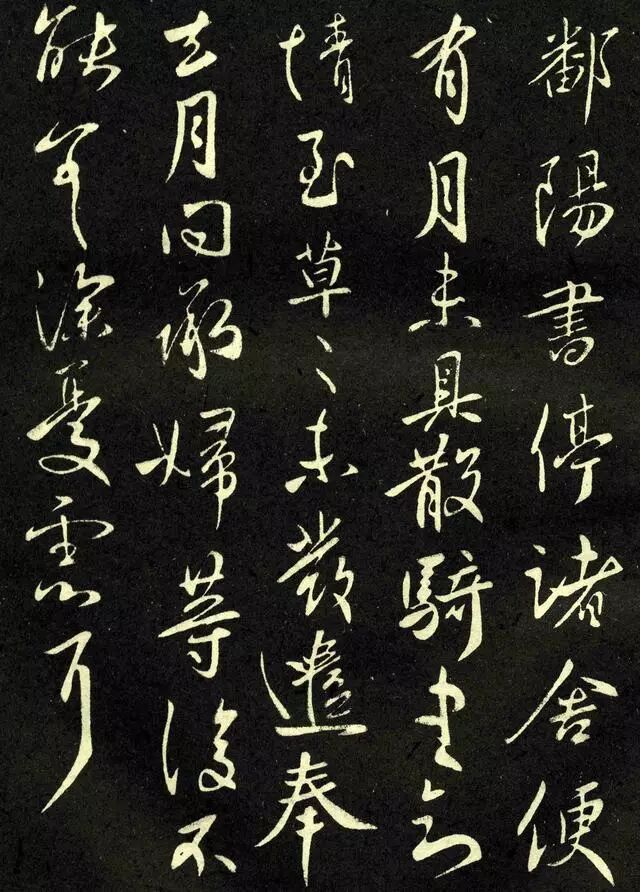 鄱陽書停諸舍便
有月未具散騎書
情至草〻未發遣奉
去月問承婦等復不
能無深憂慮耳